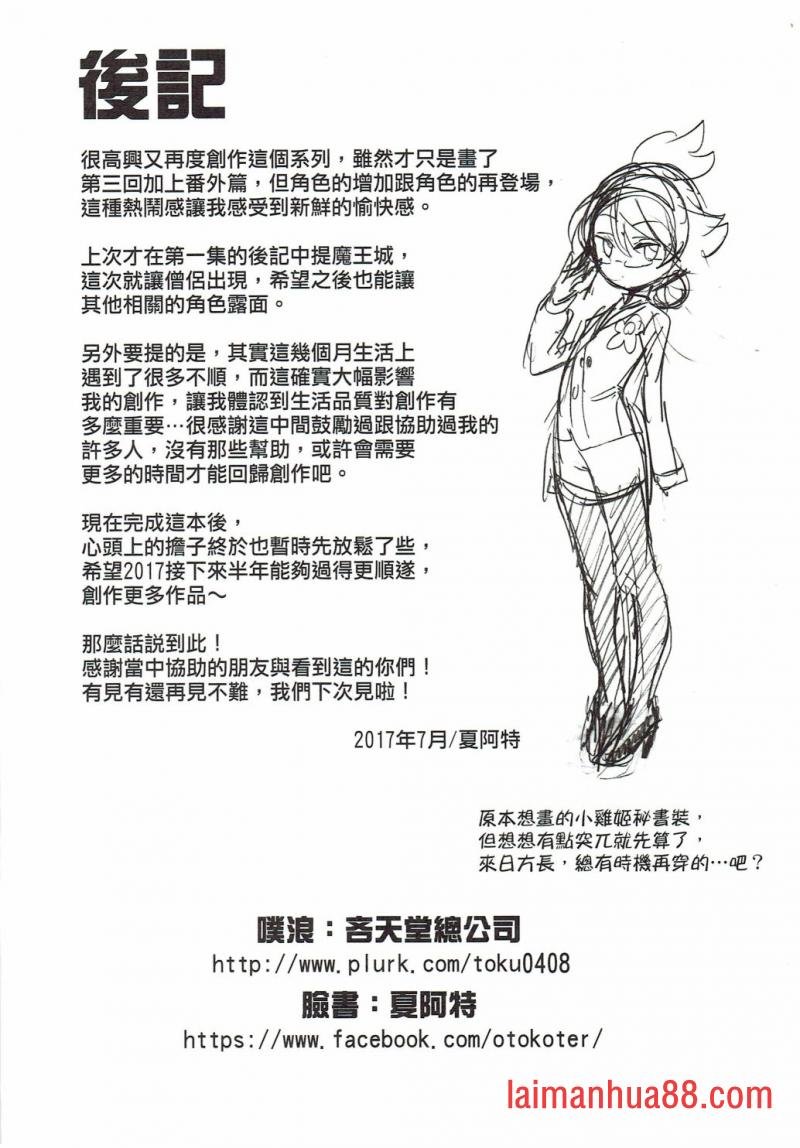 後記
很高興又再度創作這個系列，雖然才只是畫了
第三回加上番外篇，但角色的增加跟角色的再登場，
這種熱鬧感讓我感受到新鮮的愉快感。
上次才在第一集的後記中提魔王城，
這次就讓僧侶出現，希望之後也能讓
其他相關的角色露面。
另外要提的是，其實這幾個月生活上
遇到了很多不順，而這確實大幅影響
我的創作，讓我體認到生活品質對創作有
多麼重要…很感謝這中間鼓勵過跟協助過我的
許多人，沒有那些幫助，或許會需要
更多的時間才能回歸創作吧。
現在完成這本後，
心頭上的擔子終於也暫時先放鬆了些，
希望2017接下來半年能夠過得更順遂，
創作更多作品～
那麼話說到此！
感謝當中協助的朋友與看到這的你們！
有見有還再見不難，我們下次見啦！
2017年7月/夏阿特
原本想畫的小雞姬秘書裝，
但想想有點突兀就先算了，
來日方長，總有時機再穿的…吧？
噗浪：吝天堂總公司
http://www.plurk.com/toku0408
臉書：夏阿特
https://www.facebook.com/otokoter/
laimanhua88.com